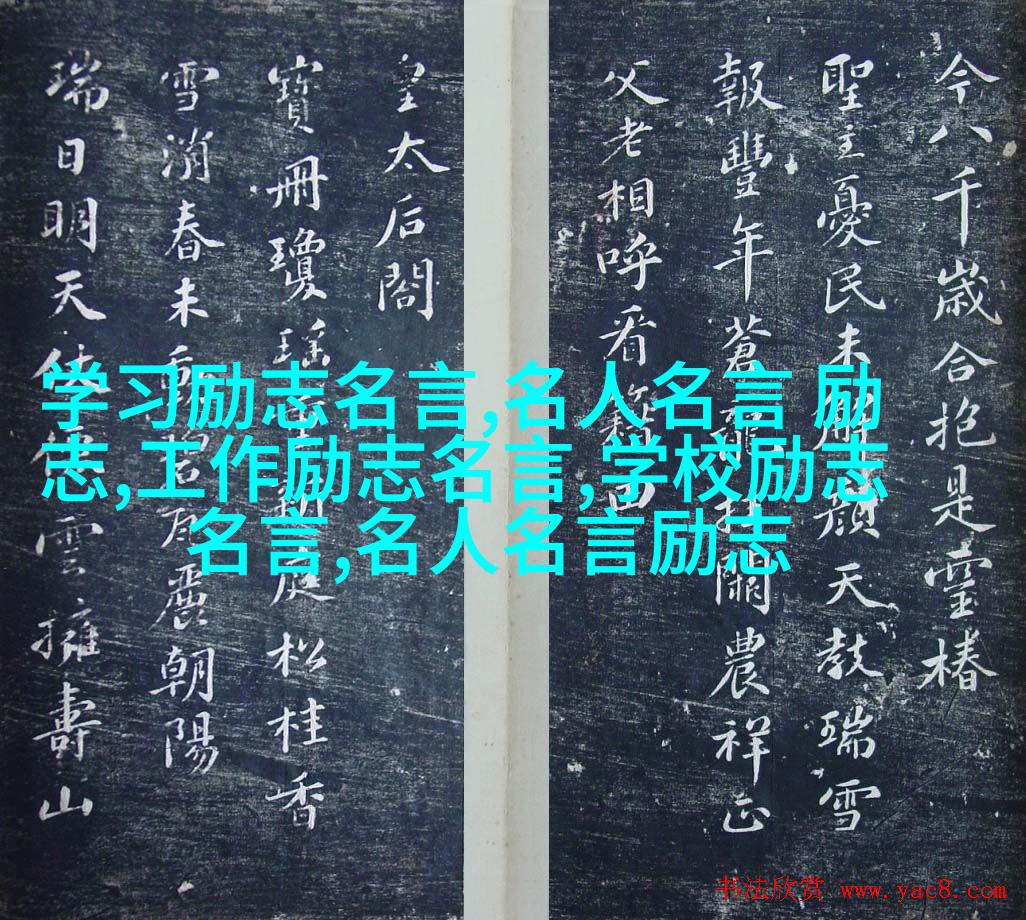 今八千歳合抱是靈椿
聖主憂民未解顔天教瑞雪
報豐年蒼龍挂闕農祥正
父老相呼看籍田
皇太后閣
寶冊瓊瑤重新庭松桂香
雪消春未動碧瓦麗朝陽
瑞日明天仗仙雲擁壽山
学习励志名言,名人名言 励
志,工作励志名言,学校励志
名言,名人名言励志
书法欣赏 www.yac8.com